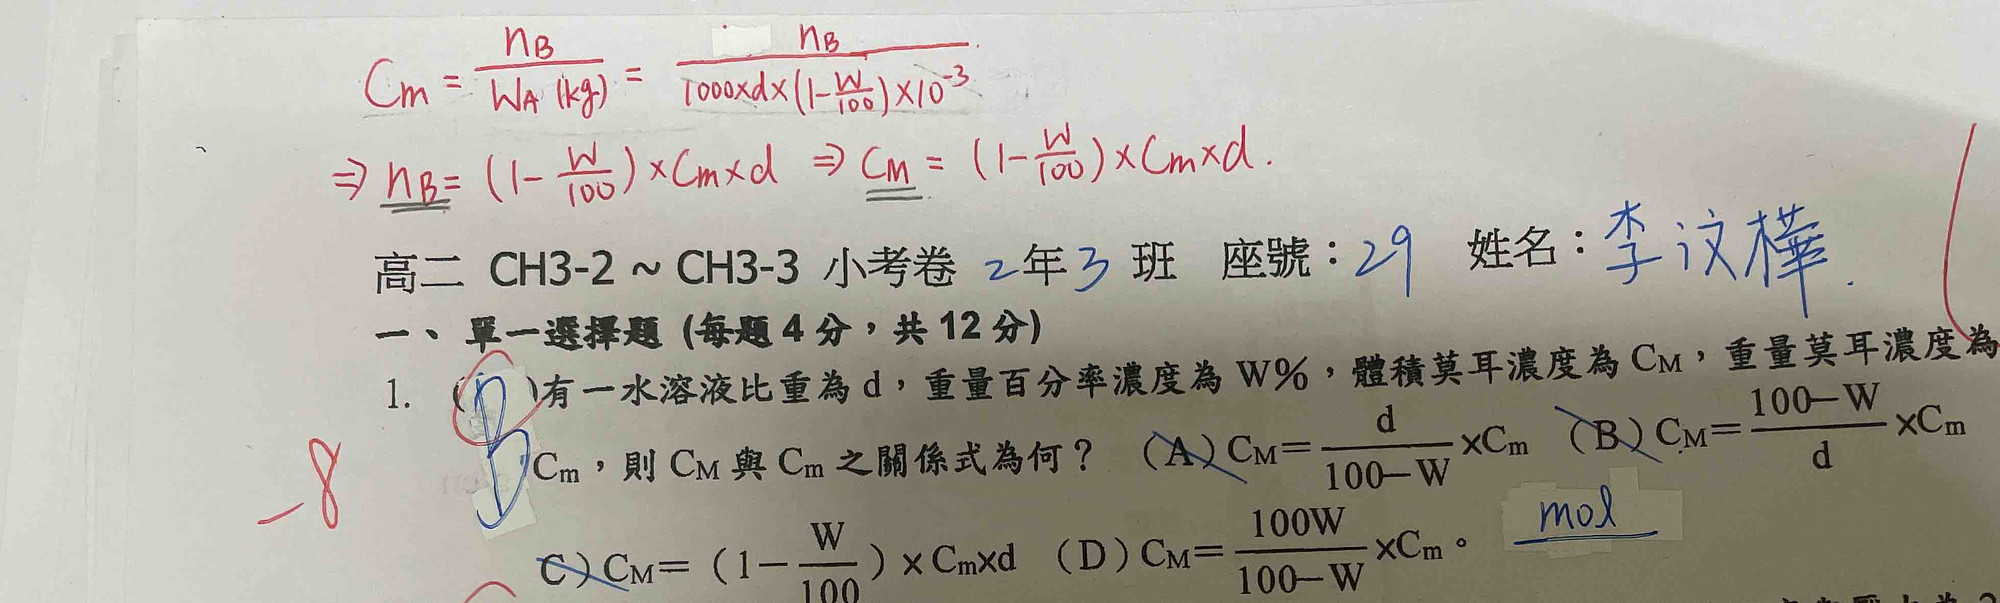 Cm = nB / WA (kg) = nB / 1000×d×(1-W/100)×10⁻³
⇒ nB = (1-W/100)×Cm×d ⇒ CM = (1-W/100)×Cm×d.
高二 CH3-2 ~ CH3-3 小考卷 2年3班 座號：29 姓名：李汶樺.
一、單一選擇題 (每題 4 分，共 12 分)
1. (B)有一水溶液比重為 d，重量百分率濃度為 W%，體積莫耳濃度為 CM，重量莫耳濃度為
-8 Cm，則 CM 與 Cm 之關係式為何？ (A) CM＝d/100−W ×Cm (B) CM＝100−W/d ×Cm
(C) CM＝(1−W/100)×Cm×d (D) CM＝100W/100−W ×Cm。 mol